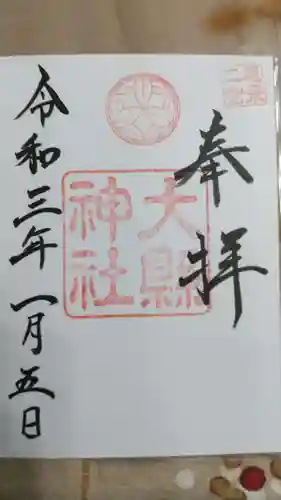 奉拝
大縣
神社
令和三年一月五日